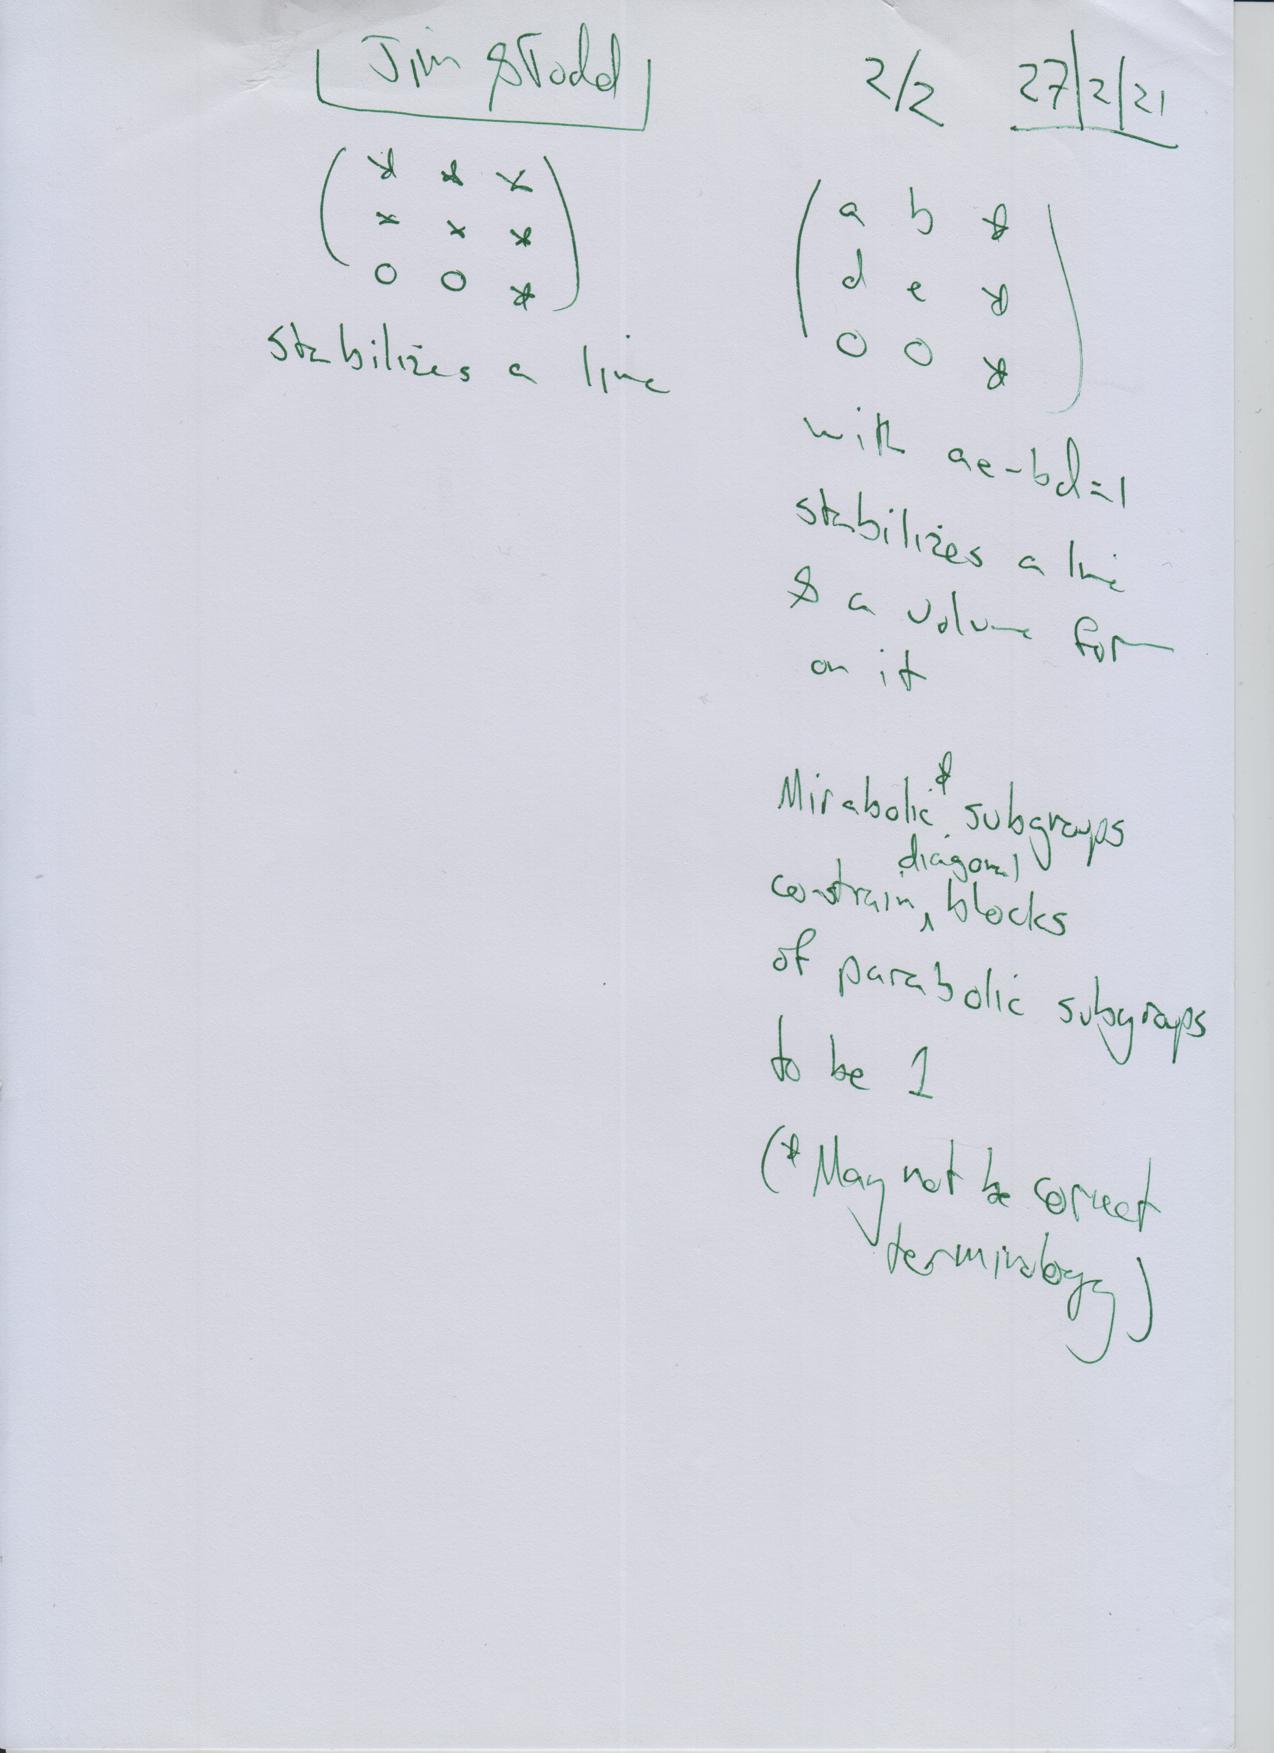 Jim & Todd 2/2 27/2/21
* * *
* * *
0 0 *
stabilizes a line
a b *
d e *
0 0 *
with ae-bd=1
stabilizes a line
& a volume form
on it
Mirabolic* subgroups
constrain diagonal blocks
of parabolic subgroups
to be 1
(* May not be correct
terminology)